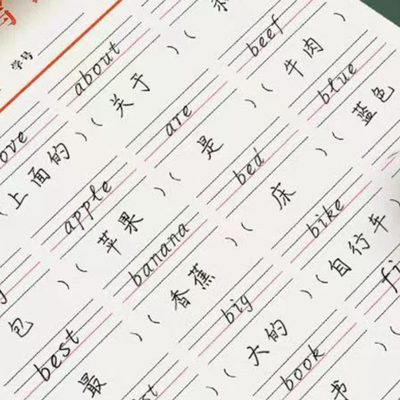 学号
about
(上面的)(关于)(
apple are beef
包)(苹果)(是)(牛肉
best banana bed blue
最)(香蕉)(床)(蓝色
big bike
)(大的)(自行车
book
书